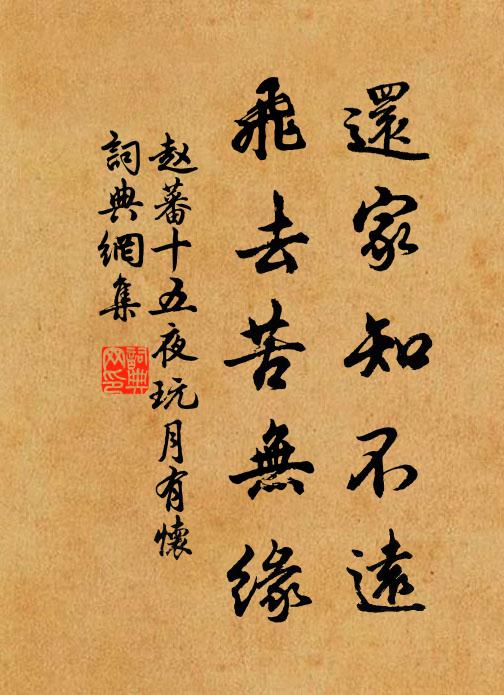 還家知不遠
飛去苦無緣
赵蕃十五夜玩月有懷
詞典網集
詞典網印